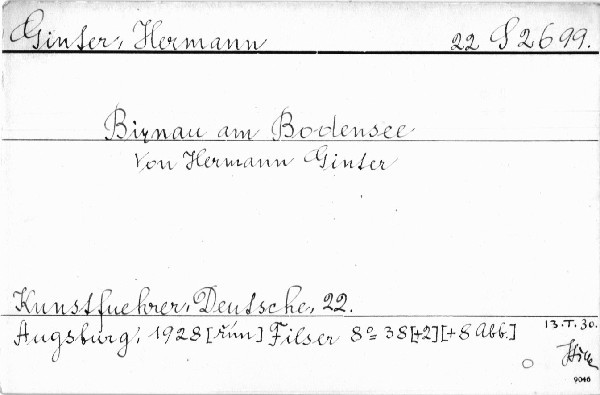 Ginter, Hermann 22 S 2699.
Birnau am Bodensee
von Hermann Ginter
Kunstfuehrer, Deutsche, 22.
Augsburg, 1928 [röm] Filser 8° 38 [+2] [+8 Abb.]
13.I.30.
9046